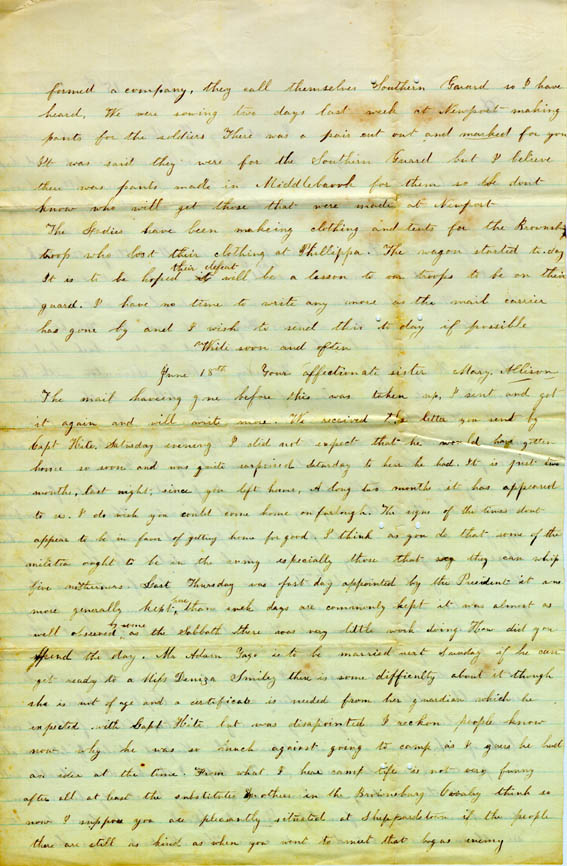 formed a company, they call themselves Southern Guard so I have
heard, We were sewing two days last week at Newport making
pants for the soldiers There was a pair cut out and marked for you
It was said they were for the Southern Guard but I believe
there was pants made in Middlebrook for them so dont
know who will get those that were made at Newport
The Ladies have been makeing clothing and tents for the Brownsburg
troop who lost their clothing at Phillippa. The wagon started to day
It is to be hoped their defeat will be a lesson to our troops to be on their
guard. I have no time to write any more as the mail carrier
has gone by and I wish to send this to day if possible
Write soon and often
June 18th Your affectionate sister Mary Allison
The mail haveing gone before this was taken up, I sent and got
it again and will write more. We received the letter you sent by
Capt Hite. Saturday evening I did not expect that he would have gotten
home so soon and was quite surprised Saturday to here he had. It is just two
months, last night, since you left home, A long two months it has appeared
to us. I do wish you could come home on furlough. The signs of the times dont
appear to be in favor of getting home for good. I think as you do that some of the
militia ought to be in the army especially those that say they can whip
five northerners. Last Thursday was fast day appointed by the President it was
more generally kept here, than such days are commonly kept it was almost as
well observed by some as the Sabbath there was very little work doing How did you
spend the day. Mr Adam is to be married next Sunday if he can
get ready to a Miss Smiley there is some difficulty about it though
she is not of age and a certificate is needed from her guardian which he
expected with Capt Hite but was disapointed I reckon people know
now why he was so much against going to camp as I guess he had
an idea at the time From what I hear camp life is not very funny
after all at least the substitutes brothers in the Brownsburg Cavalry think so
now I suppose you are pleasantly situated at Sheppardstown if the people
there are still as kind as when you went to meet that bogus enemy